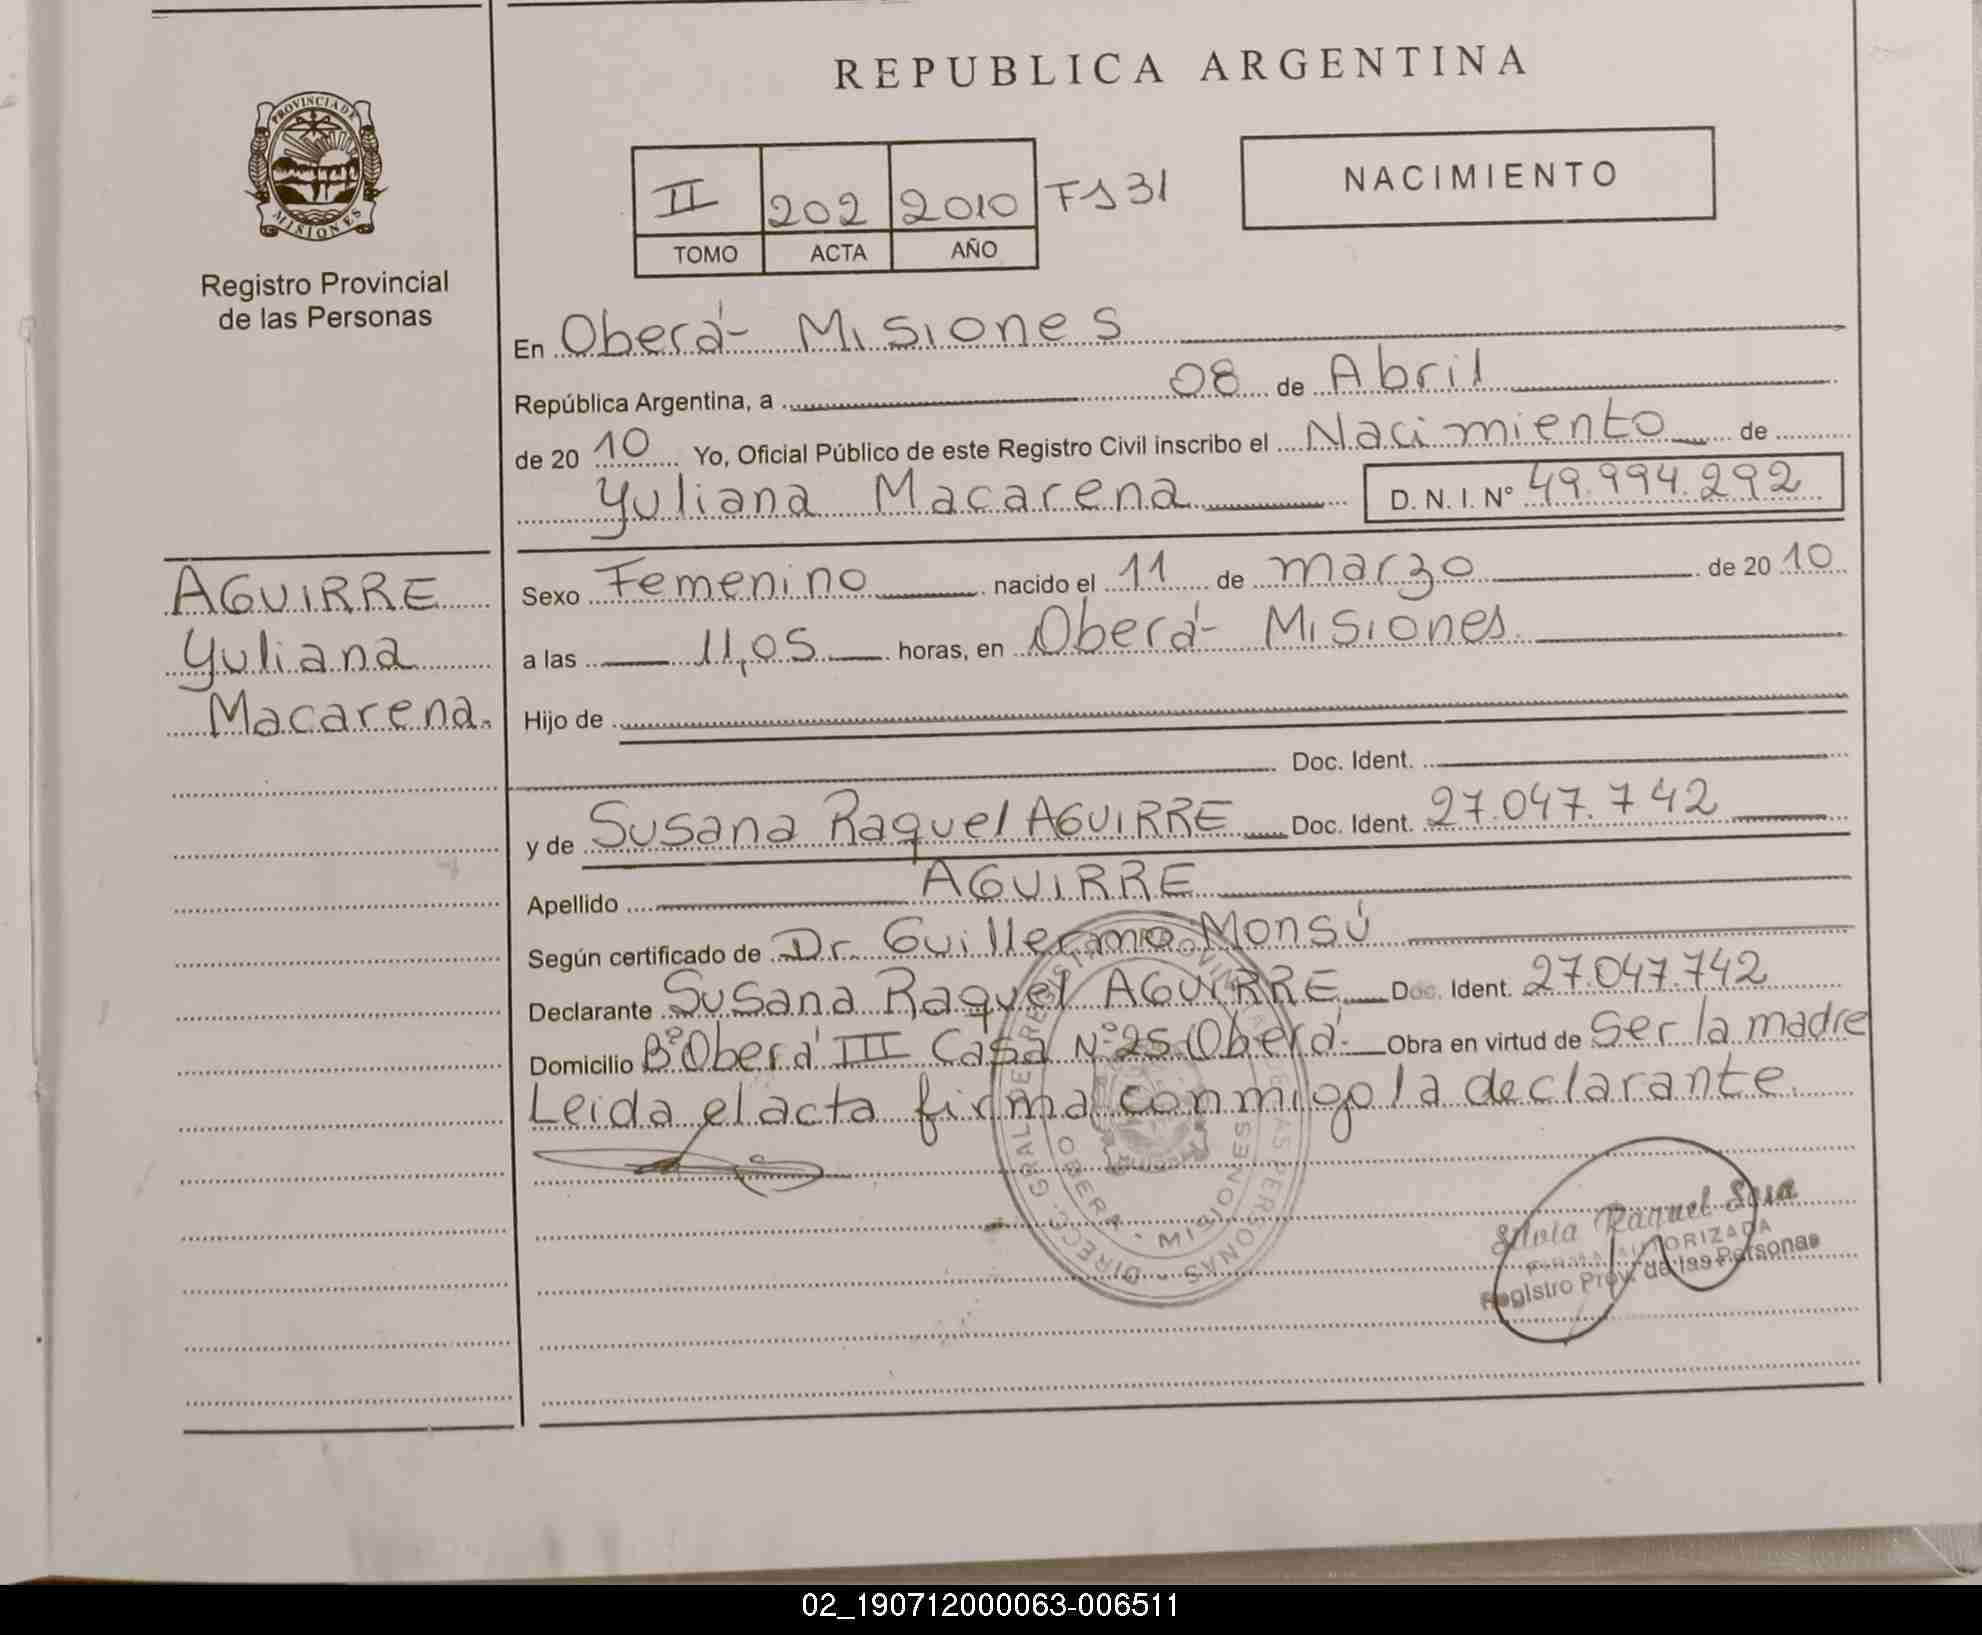 REPUBLICA ARGENTINA
PROVINCIA DE
MISIONES
Registro Provincial
de las Personas
II 202 2010 FS 31
TOMO ACTA AÑO
NACIMIENTO
En Oberá- Misiones
República Argentina, a 08 de Abril
de 20 10 Yo, Oficial Público de este Registro Civil inscribo el Nacimiento de
Yuliana Macarena D. N. I. N° 49.994.292
AGUIRRE
Yuliana
Macarena.
Sexo Femenino nacido el 11 de marzo de 20 10
a las 11,05 horas, en Oberá- Misiones.
Hijo de
Doc. Ident.
y de Susana Raquel AGUIRRE Doc. Ident. 27.047.742
Apellido AGUIRRE
Según certificado de Dr. Guillermo Monsú
Declarante Susana Raquel AGUIRRE Doc. Ident. 27.047.742
Domicilio B° Oberá III Casa N° 25. Oberá. Obra en virtud de Ser la madre
Leida el acta firma conmigo la declarante.
OBERA - MISIONES
Silvia Raquel Sosa
FIRMA AUTORIZADA
Registro Prov. de las Personas
02_190712000063-006511